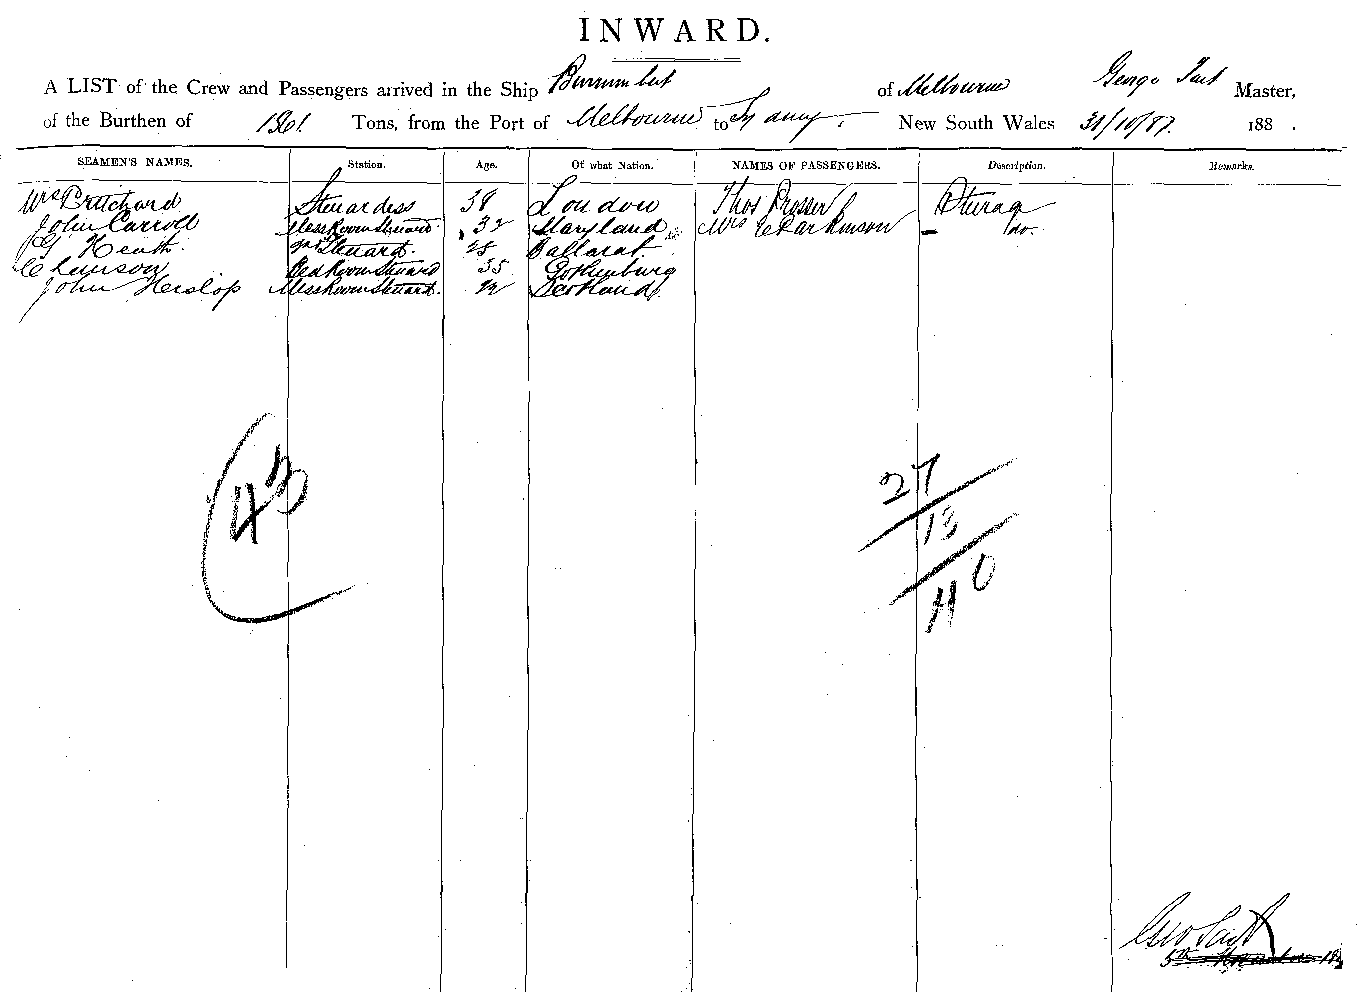 INWARD.
A LIST of the Crew and Passengers arrived in the Ship Burrumbeet of Melbourne George Tait Master,
of the Burthen of Tons, from the Port of Melbourne to Sydney New South Wales 31/10/87 188 .
SEAMEN'S NAMES. Station. Age. Of what Nation. NAMES OF PASSENGERS. Description. Remarks.
Mrs Pritchard Stewardess 38 London Thos Prosser
John Carroll Mess Room Steward 32 Maryland Mrs Parkinson do.
G Heath Steward 28 Ballarat
Bed Room Steward 35 Gothenburg
John Heslop Mess Room Steward Scotland
43
27
13
40
Geo Tait